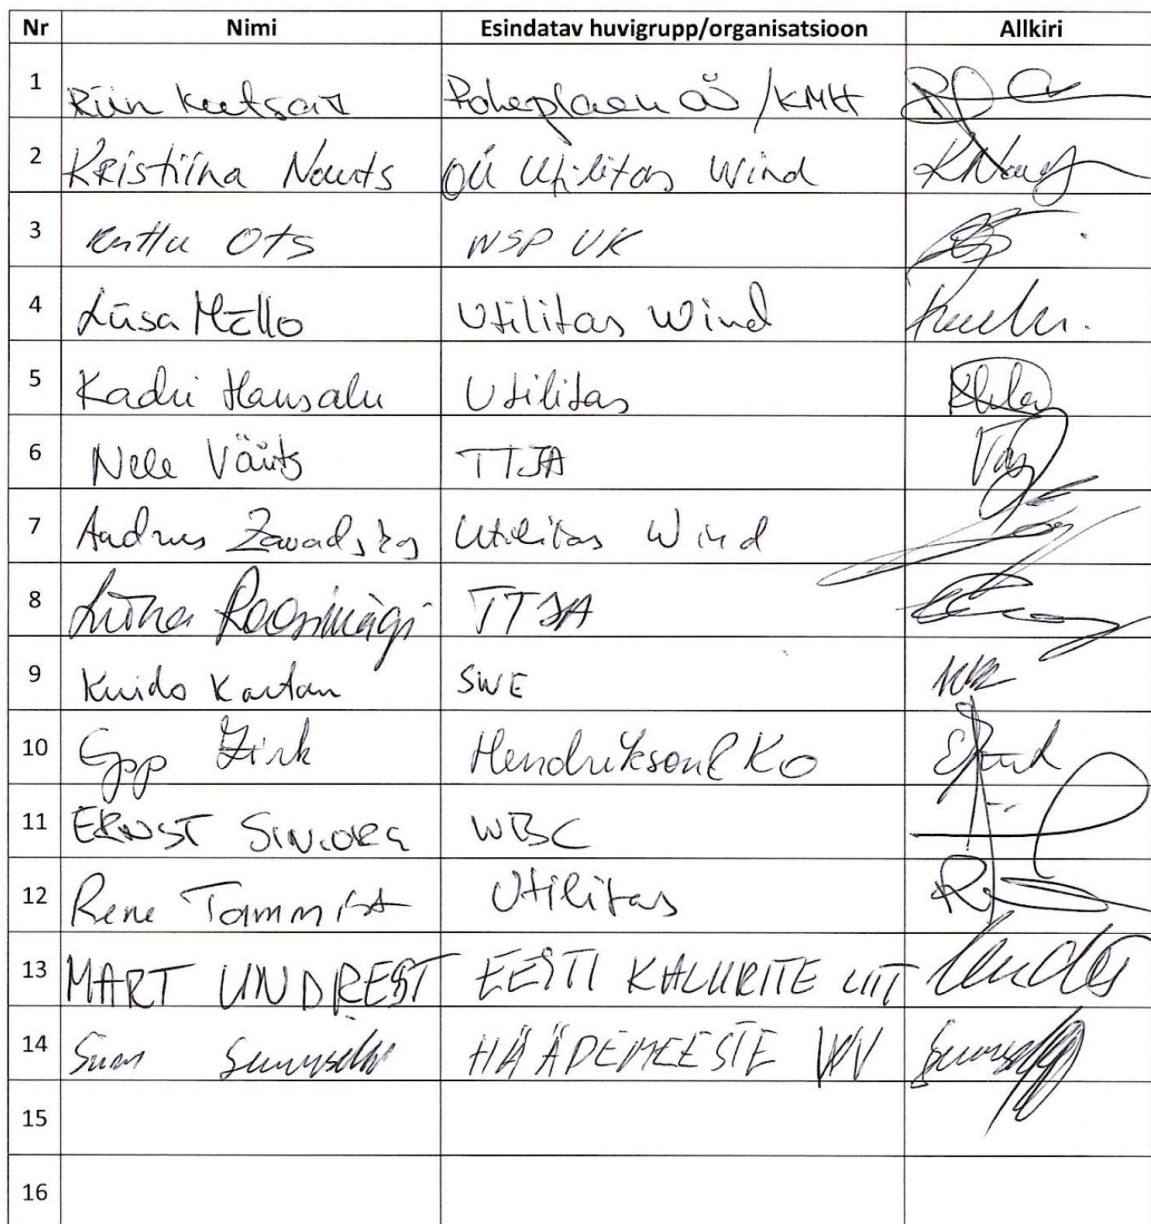 Nr Nimi Esindatav huvigrupp/organisatsioon Allkiri
1 Riin Kutsar Roheplaan OÜ /KMH
2 Kristiina Nauts OÜ Utilitas Wind
3 Ots WSP UK
4 Liisa Mällo Utilitas Wind
5 Kadri Hansalu Utilitas
6 Nele Väits TTJA
7 Andrus Zavadskis Utilitas Wind
8 Liina Roosimägi TTJA
9 Kuido Kartau SWE
10 Epp Zirk Hendrikson & Ko
11 ERNST WBC
12 Rene Tammist Utilitas
13 MART UNDREST EESTI KALURITE LIIT
14 Siim Suursild HÄÄDEMEESTE VV
15
16